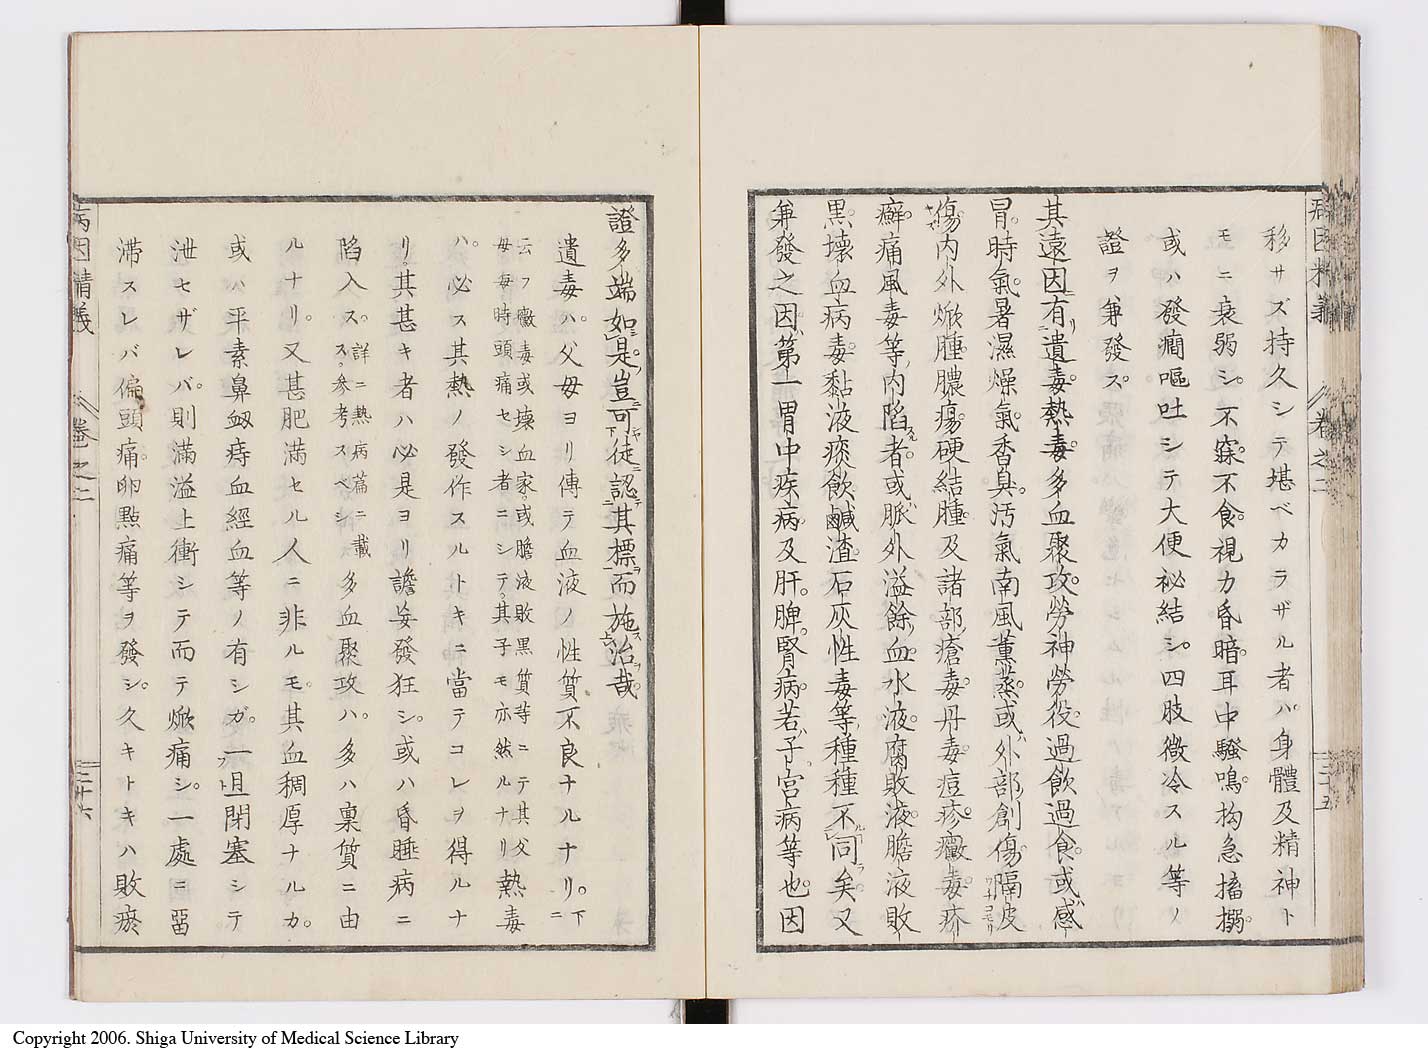 病因精義
卷之二
三十五
移サズ持久シテ堪ベカラザル者ハ身體及精神ト
モニ衰弱シ。不寐不食視力昏暗。耳中騷鳴。拘急搐搦。
或ハ發癎嘔吐シテ大便祕結シ。四肢微冷スル等ノ
證ヲ兼發ス。
其遠因有遺毒。熱毒。多血聚攻。勞神勞役。過飲過食。或感
冒。時氣。暑濕燥氣。香臭。汚氣南風薫蒸。或外部創傷。隔皮
傷。内外焮腫。膿瘍。硬結腫。及諸部瘡毒。丹毒。痘疹。黴毒。疥
癬。痛風毒等。内陷者。或脈外溢餘血。水液腐敗液。膽液敗
黒。壊血病毒。黏液痰飲。鹹渣。石灰性毒等。種種不同矣。又
兼發之因。第一胃中疾病。及肝。脾。腎病。若子宮病等也。因
證多端如是。豈可徒認其標而施治哉。
遺毒ハ。父母ヨリ傳テ血液ノ性質不良ナルナリ。下ニ
云フ黴毒或壊血家。或膽液敗黒質等ニテ其父
母毎時頭痛セシ者ニシテ。其子モ亦然ルナリ
熱毒
ハ。必ス其熱ノ發作スルトキニ當テコレヲ得ルナ
リ。其甚キ者ハ必是ヨリ譫妄發狂シ。或ハ昏睡病ニ
陷入ス。詳ニ熱病篇ニ載
ス。參考スベシ
多血聚攻ハ。多ハ稟質ニ由
ルナリ。又甚肥満セル人ニ非ルモ。其血稠厚ナルカ。
或ハ平素鼻衄痔血經血等ノ有シガ。一旦閉塞シテ
泄セザレバ。則滿溢上衝シテ而テ焮痛シ。一處ニ畱
滞スレバ偏頭痛。卵點痛等ヲ發シ。久キトキハ敗瘀
病因精義
卷之二
三十六
Copyright 2006. Shiga University of Medical Science Library